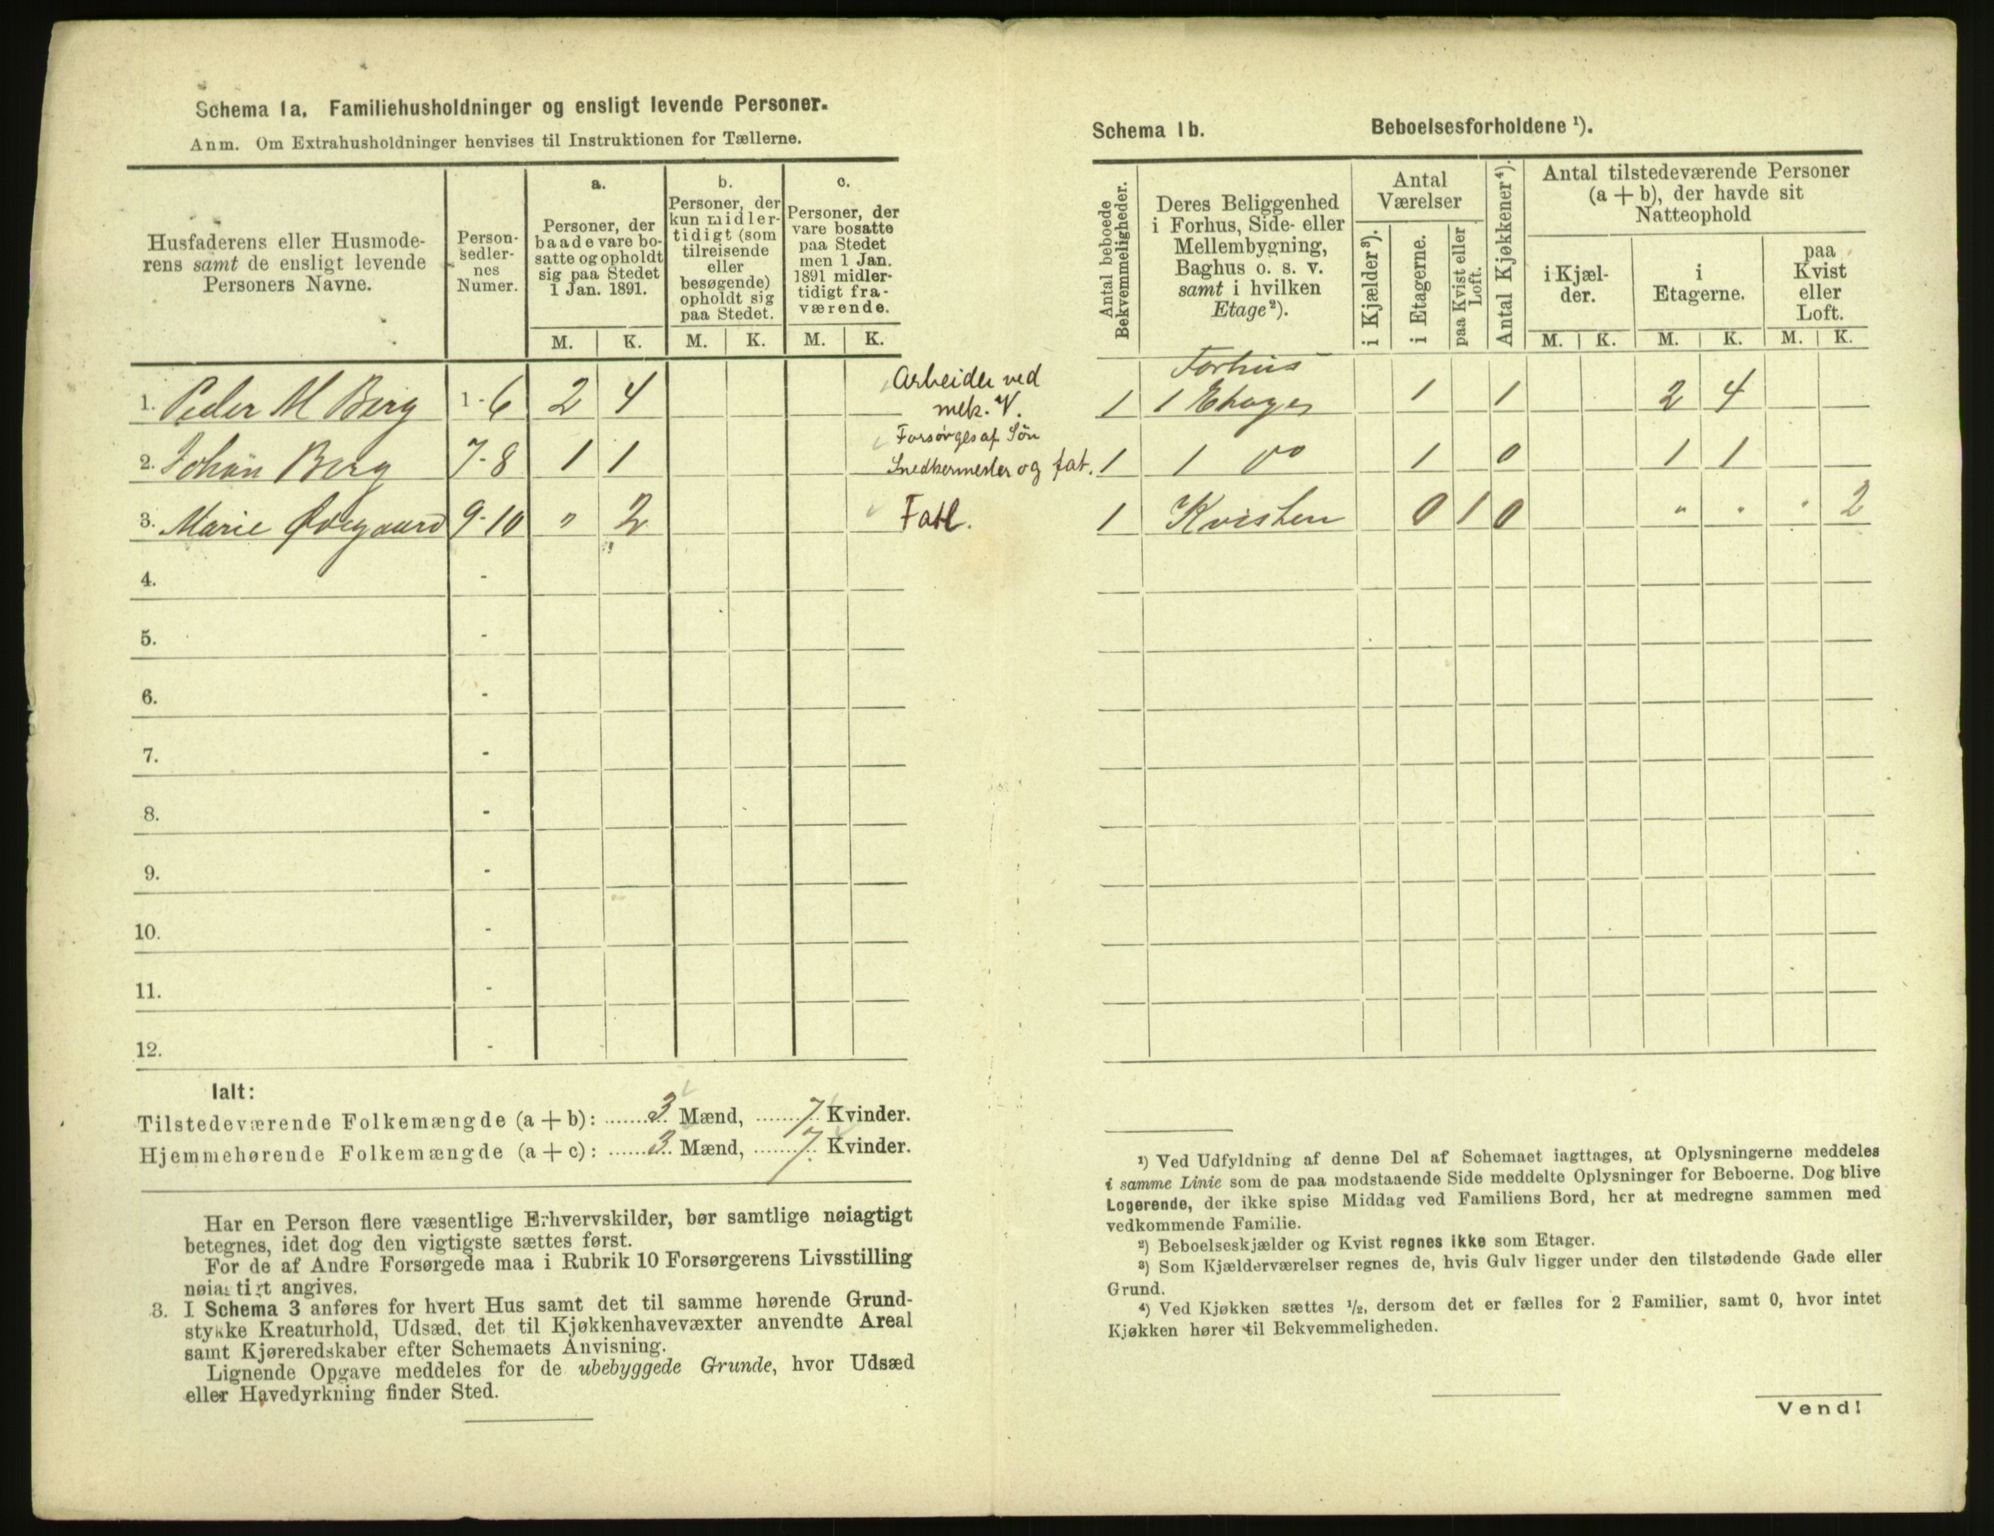 Schema 1a. Familiehusholdninger og ensligt levende Personer.
Anm. Om Extrahusholdninger henvises til Instruktionen for Tællerne.
Husfaderens eller Husmode-
rens samt de ensligt levende
Personers Navne.
Person-
sedler-
nes
Numer.
a.
Personer, der
baade vare bo-
satte og opholdt
sig paa Stedet
1 Jan. 1891.
b.
Personer, der
kun midler-
tidigt (som
tilreisende
eller
besøgende)
opholdt sig
paa Stedet.
c.
Personer, der
vare bosatte
paa Stedet
men 1 Jan.
1891 midler-
tidigt fra-
værende.
M. K. M. K. M. K.
1. Peder M Berg 1-6 2 4 Arbeider ved
mek. V.
2. Johan Berg 7-8 1 1 Forsørges af Søn
Snedkermester og fat.
3. Marie Øvegaard 9-10 " 2 Fatl.
4. -
5. -
6. -
7. -
8. -
9. -
10. -
11. -
12. -
Ialt:
Tilstedeværende Folkemængde (a + b): 3 Mænd, 7 Kvinder.
Hjemmehørende Folkemængde (a + c): 3 Mænd, 7 Kvinder.
Har en Person flere væsentlige Erhvervskilder, bør samtlige nøiagtigt
betegnes, idet dog den vigtigste sættes først.
For de af Andre Forsørgede maa i Rubrik 10 Forsørgerens Livsstilling
nøiagtigt angives.
3. I Schema 3 anføres for hvert Hus samt det til samme hørende Grund-
stykke Kreaturhold, Udsæd, det til Kjøkkenhavevæxter anvendte Areal
samt Kjøreredskaber efter Schemaets Anvisning.
Lignende Opgave meddeles for de ubebyggede Grunde, hvor Udsæd
eller Havedyrkning finder Sted.
Schema 1b. Beboelsesforholdene ¹).
Antal beboede
Bekvemmeligheder.
Deres Beliggenhed
i Forhus, Side- eller
Mellembygning,
Baghus o. s. v.
samt i hvilken
Etage²).
Antal
Værelser
i Kjælder³).
i Etagerne.
paa Kvist eller
Loft.
Antal Kjøkkener⁴).
Antal tilstedeværende Personer
(a + b), der havde sit
Natteophold
i Kjæl-
der.
i
Etagerne.
paa
Kvist
eller
Loft.
M. K. M. K. M. K.
Forhus
1 1 Etages 1 1 2 4
1 1 do 1 0 1 1
1 Kvisten 0 1 0 " " " 2
¹) Ved Udfyldning af denne Del af Schemaet iagttages, at Oplysningerne meddeles
i samme Linie som de paa modstaaende Side meddelte Oplysninger for Beboerne. Dog blive
Logerende, der ikke spise Middag ved Familiens Bord, her at medregne sammen med
vedkommende Familie.
²) Beboelseskjælder og Kvist regnes ikke som Etager.
³) Som Kjælderværelser regnes de, hvis Gulv ligger under den tilstødende Gade eller
Grund.
⁴) Ved Kjøkken sættes ½, dersom det er fælles for 2 Familier, samt 0, hvor intet
Kjøkken hører til Bekvemmeligheden.
Vend!